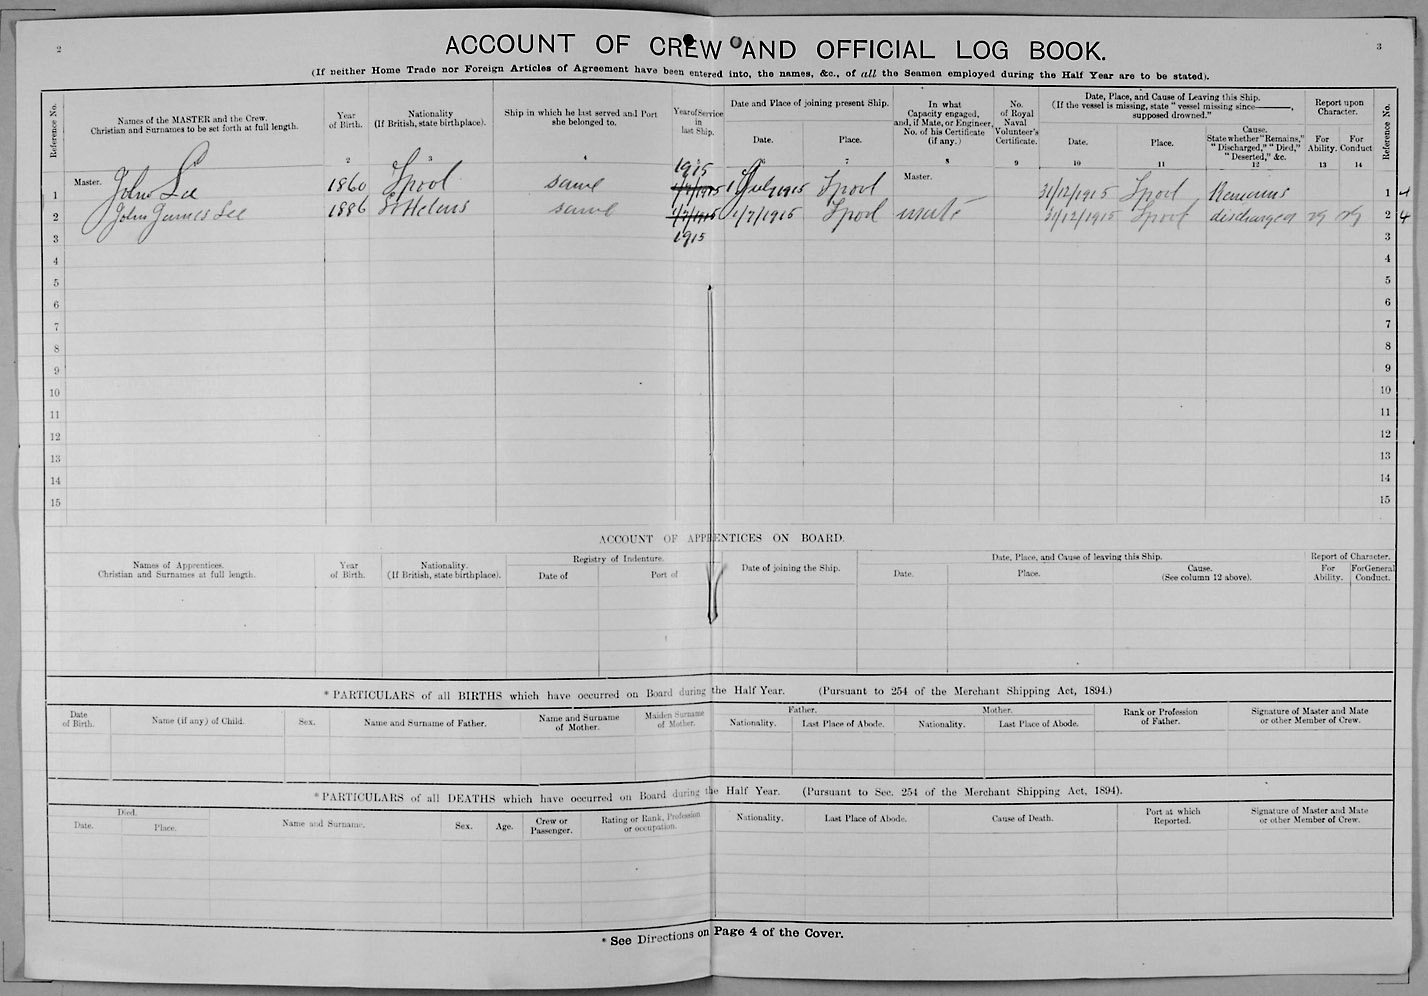 2
3
ACCOUNT OF CREW AND OFFICIAL LOG BOOK.
(If neither Home Trade nor Foreign Articles of Agreement have been entered into, the names, &c., of all the Seamen employed during the Half Year are to be stated).
Reference No. Names of the MASTER and the Crew. Christian and Surnames to be set forth at full length. Year of Birth. Nationality (If British, state birthplace). Ship in which he last served and Port she belonged to. Year of Service in last Ship. Date and Place of joining present Ship. In what Capacity engaged, and, if Mate, or Engineer, No. of his Certificate (if any.) No. of Royal Naval Volunteer's Certificate. Date, Place, and Cause of Leaving this Ship. (If the vessel is missing, state "vessel missing since———, supposed drowned." Report upon Character. Reference No.
Date. Place. Date. Place. Cause. State whether "Remains," "Discharged," "Died," "Deserted," &c. For Ability. For Conduct
2 3 4 6 7 8 9 10 11 12 13 14
1915
1 Master. John Lee 1860 Lpool same 1/7/1915 1 July 1915 Lpool Master. 31/12/1915 Lpool Remains 1
2 John James Lee 1886 St Helens same 1/7/1915 1/7/1915 Lpool mate 31/12/1915 Lpool discharged VG VG 2
1915
3 3
4 4
5 5
6 6
7 7
8 8
9 9
10 10
11 11
12 12
13 13
14 14
15 15
ACCOUNT OF APPRENTICES ON BOARD.
Names of Apprentices. Christian and Surnames at full length. Year of Birth. Nationality. (If British, state birthplace). Registry of Indenture. Date of joining the Ship. Date, Place, and Cause of leaving this Ship. Report of Character.
Date of Port of Date. Place. Cause. (See column 12 above). For Ability. For General Conduct.
* PARTICULARS of all BIRTHS which have occurred on Board during the Half Year. (Pursuant to 254 of the Merchant Shipping Act, 1894.)
Date of Birth. Name (if any) of Child. Sex. Name and Surname of Father. Name and Surname of Mother. Maiden Surname of Mother. Father. Mother. Rank or Profession of Father. Signature of Master and Mate or other Member of Crew.
Nationality. Last Place of Abode. Nationality. Last Place of Abode.
* PARTICULARS of all DEATHS which have occurred on Board during the Half Year. (Pursuant to Sec. 254 of the Merchant Shipping Act, 1894).
Died. Name and Surname. Sex. Age. Crew or Passenger. Rating or Rank, Profession or occupation. Nationality. Last Place of Abode. Cause of Death. Port at which Reported. Signature of Master and Mate or other Member of Crew.
Date. Place.
* See Directions on Page 4 of the Cover.